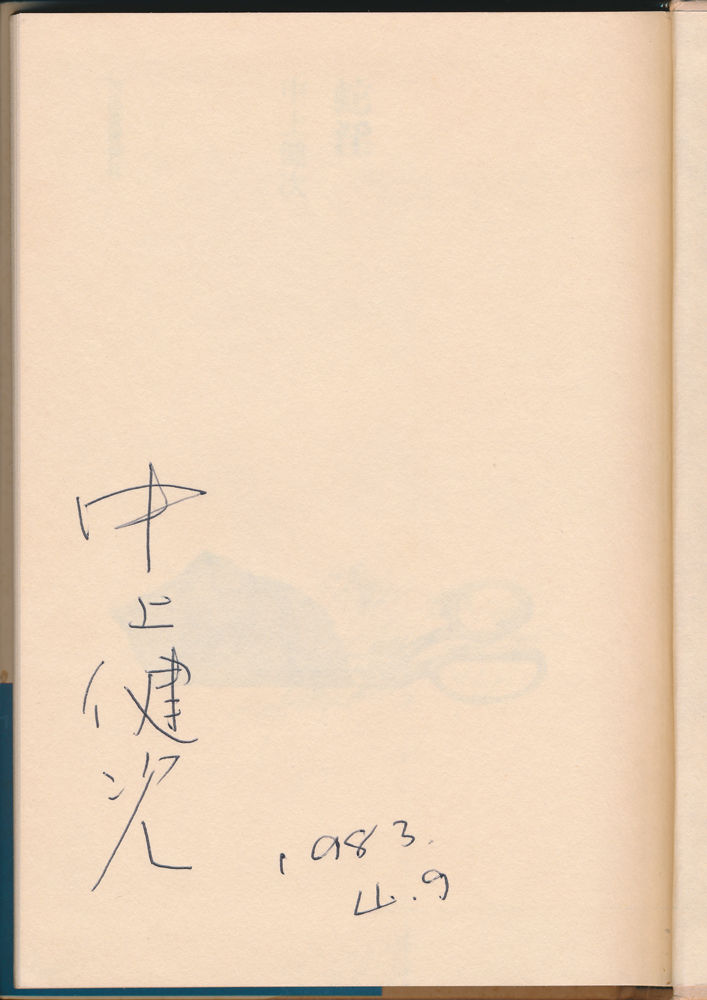 中上健次
1983.
4.9